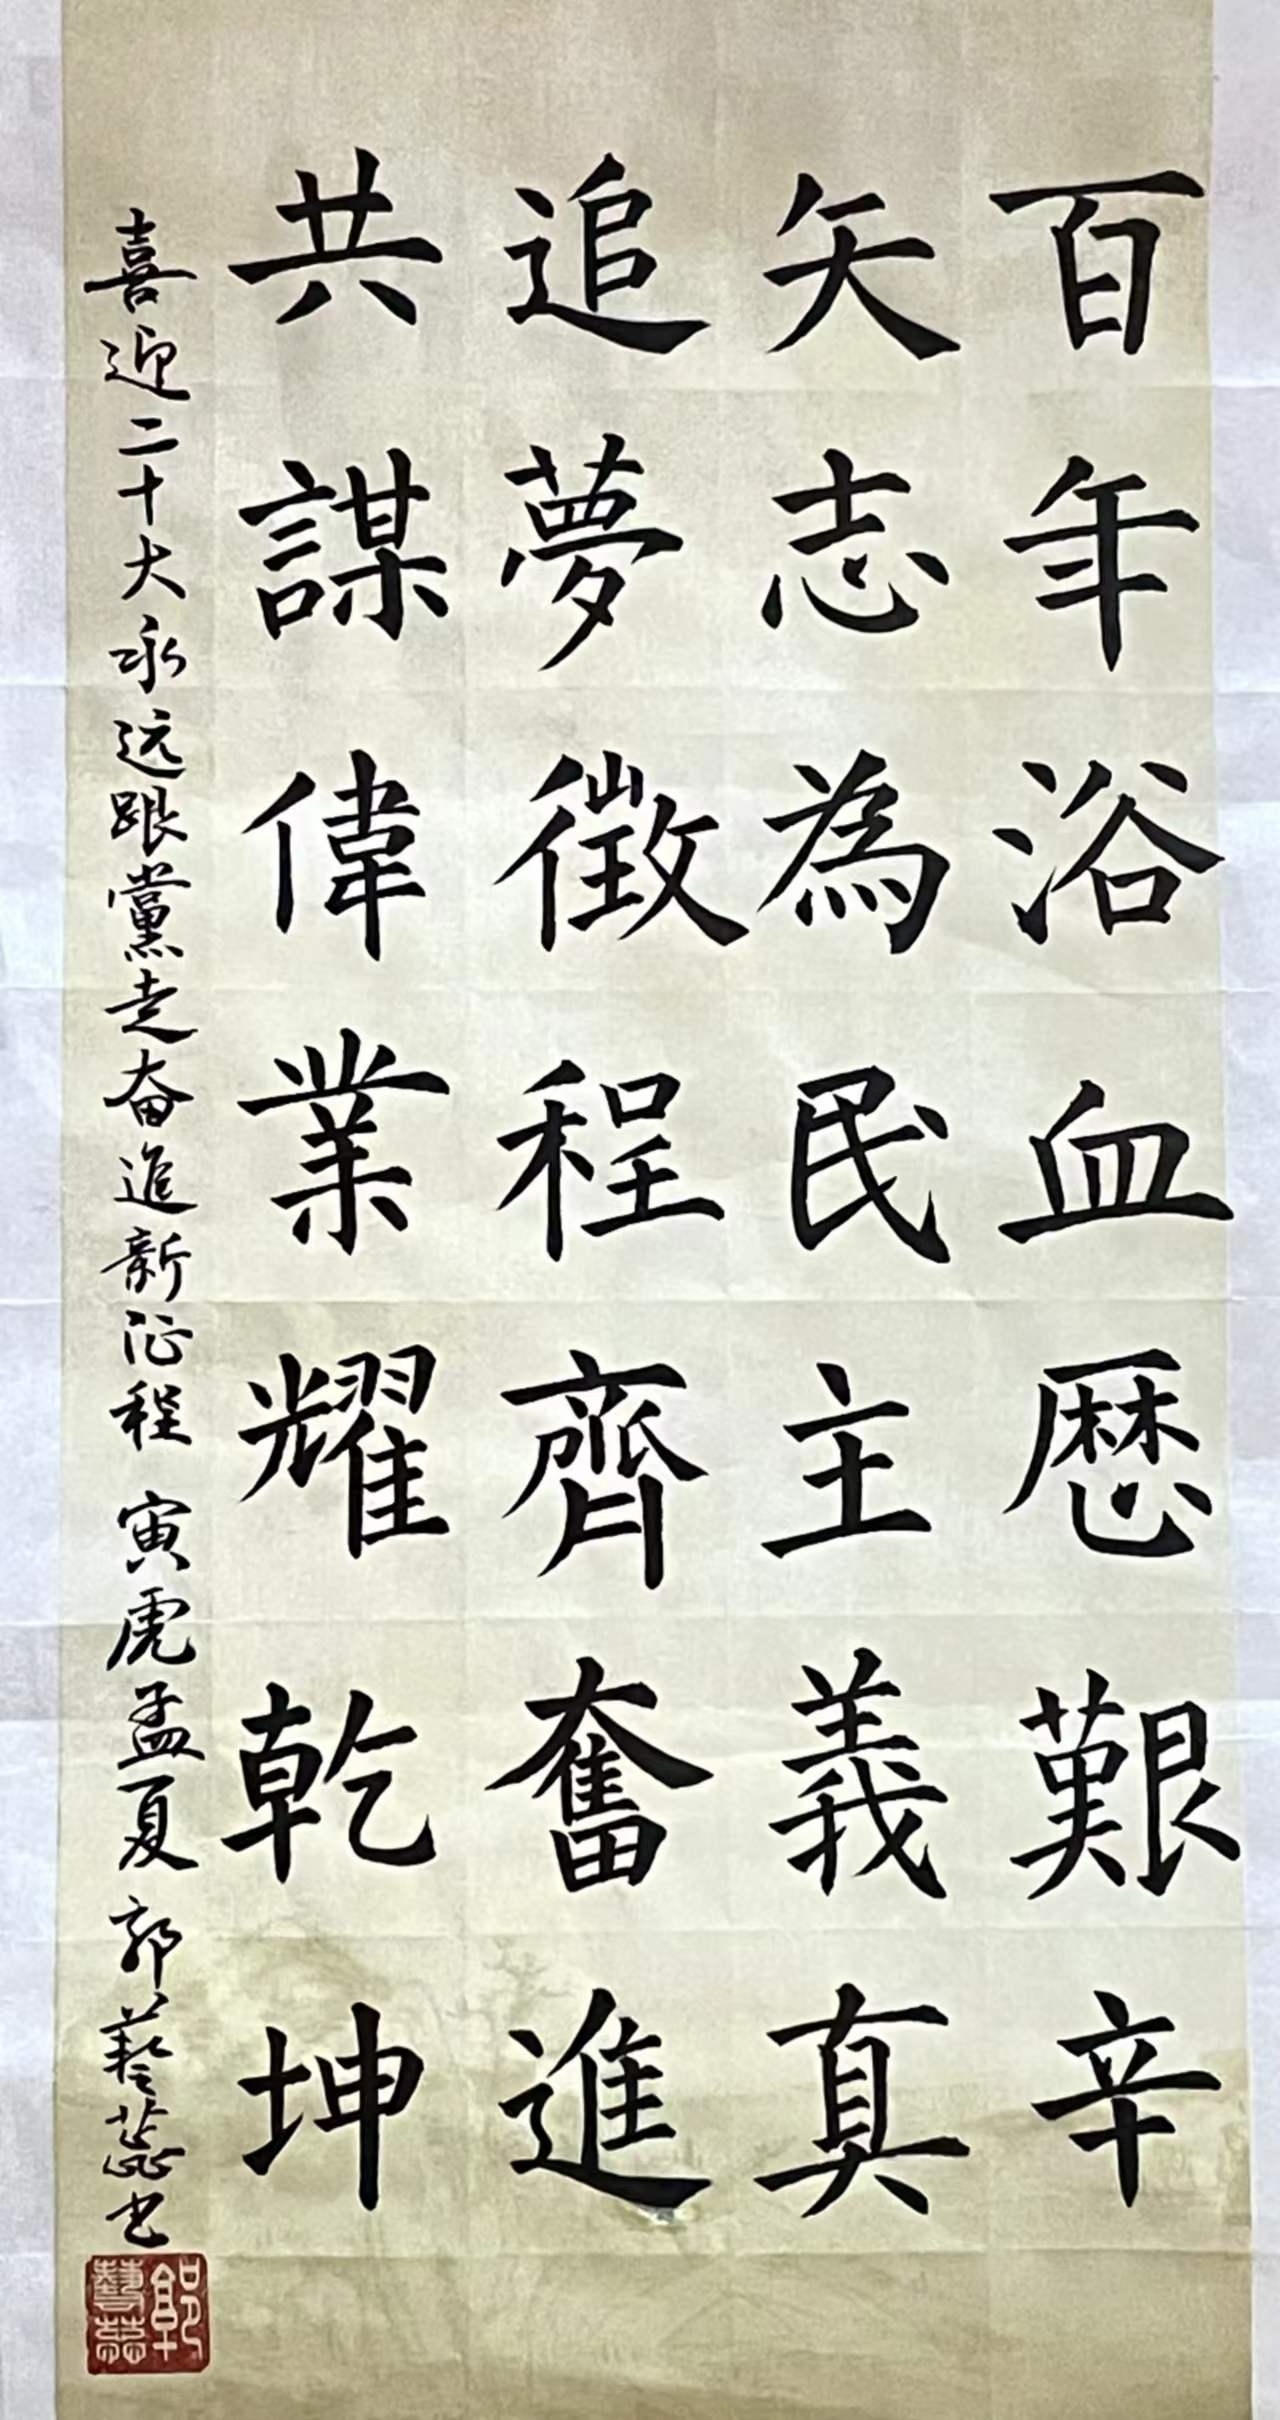 百年浴血歴艱辛
矢志為民主義真
追夢徵程齊奮進
共謀偉業耀乾坤
喜迎二十大永远跟黨走奋進新征程 寅虎孟夏 郭藝蕊书
郭藝蕊